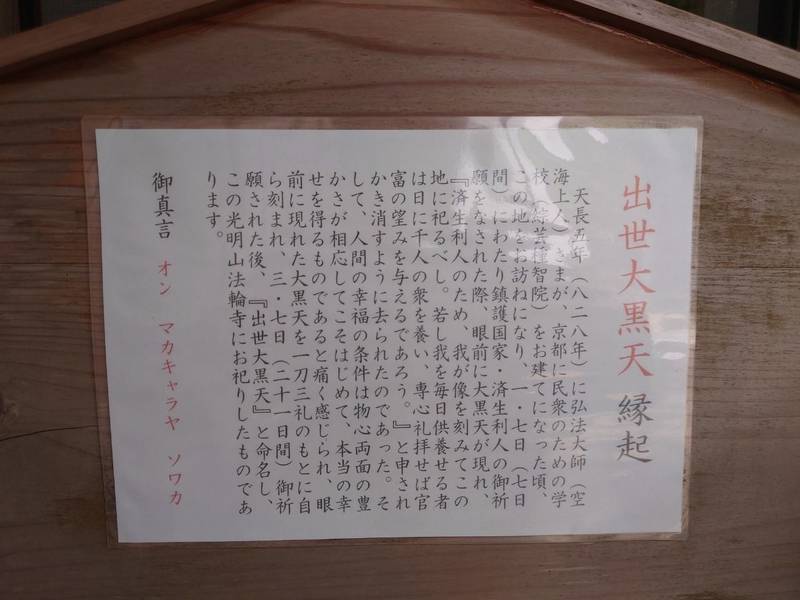 出世大黒天 縁起
天長五年（八二八年）に弘法大師（空
海上人）さまが、京都に民衆のための学
校（綜芸種智院）をお建てになった頃、
この地をお訪ねになり、一・七日（七日
間）にわたり鎮護国家・済生利人の御祈
願をなされた際、眼前に大黒天が現れ、
『済生利人のため、我が像を刻みてこの
地に祀るべし。若し我を毎日供養せる者
は日に千人の衆を養い、専心礼拝せば官
富の望みを与えるであろう。』と申され
かき消すように去られたのであった。そ
して、人間の幸福の条件は物心両面の豊
かさが相応してこそはじめて、本当の幸
せを得るものであると痛く感じられ、眼
前に現れた大黒天を一刀三礼のもとに自
ら刻まれ、三・七日（二十一日間）御祈
願された後、『出世大黒天』と命名し、
この光明山法輪寺にお祀りしたものであ
ります。
御真言 オン マカキャラヤ ソワカ